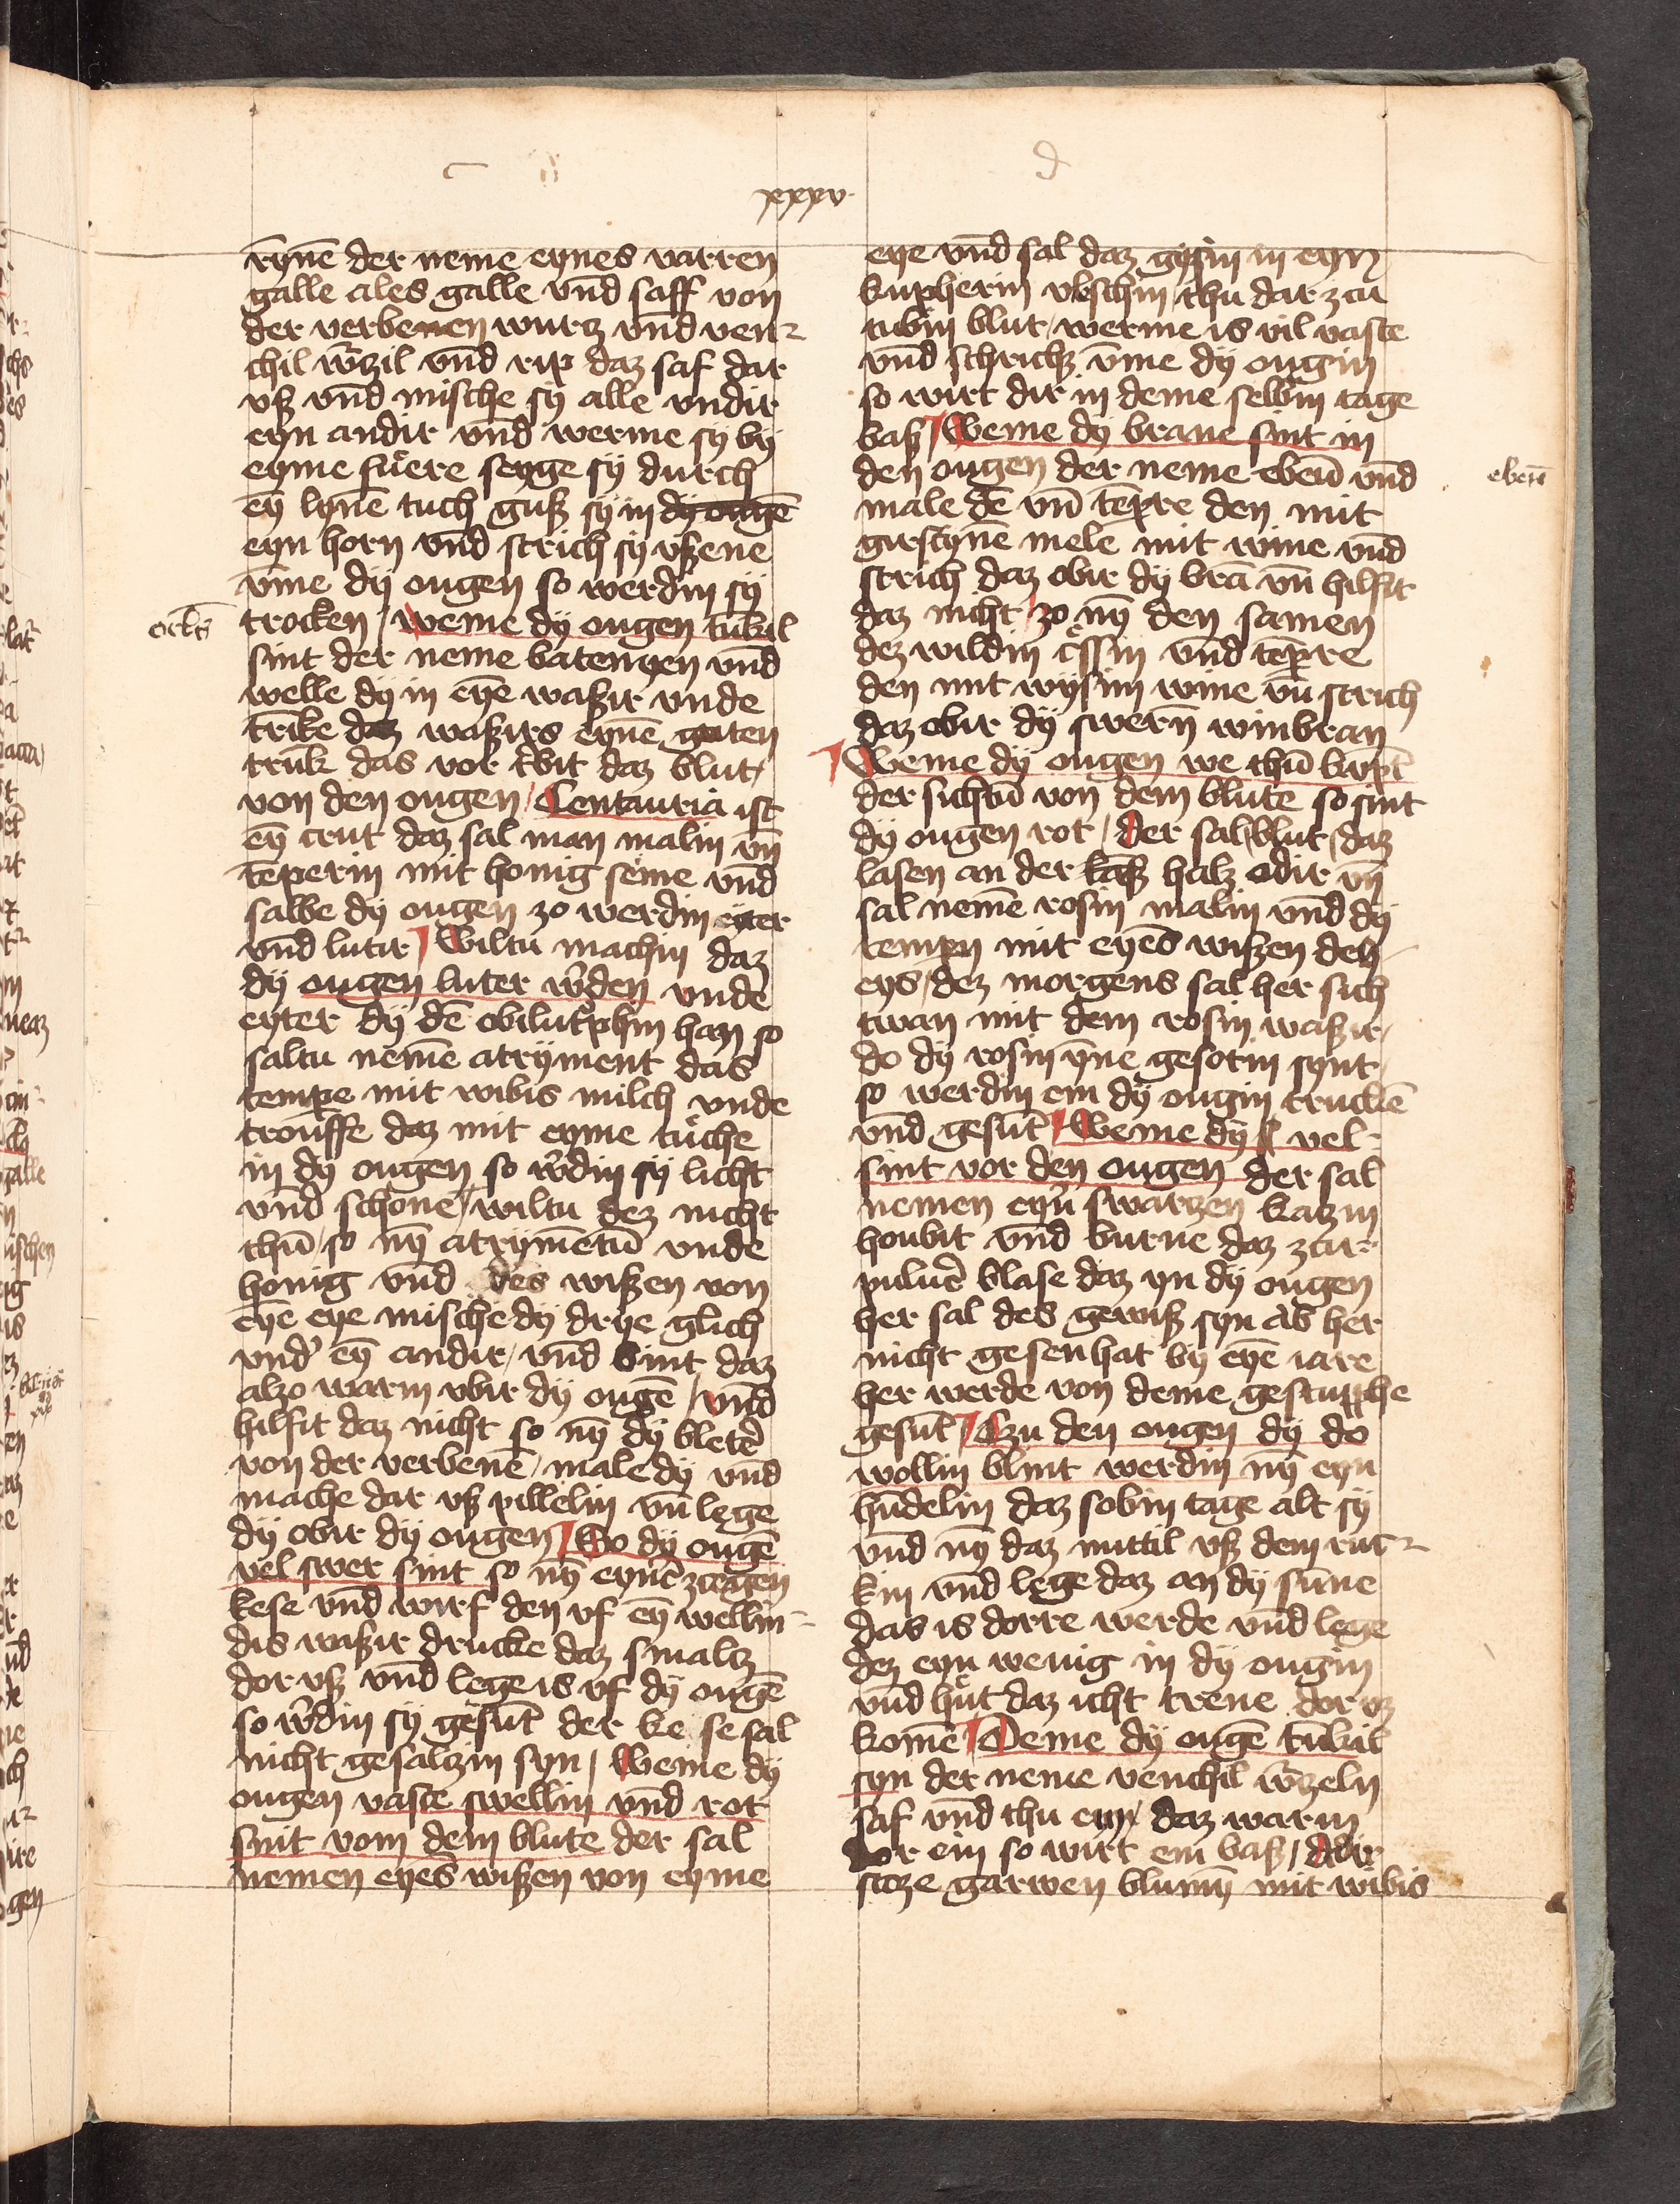 xxxv
rynē der neme eynes varren
galle ales galle vnd saff von
der verbenen wurcz vnd ven
chil w̄rzil vnd rip daz saf dar
vß vnd mische sÿ alle vndir
eyn andir vnd werme sÿ bÿ
eyme fuͤere seyge sÿ durch
eȳ lynē tuch guß sÿ in dÿ ougē
eyn horn vnd strich sÿ vßene
vm̄e dÿ ougen so werdin sÿ
trocken / weme dÿ ougen tūkil
sint der neme batenyen vnd
welle dÿ in eyē waßir vnde
trīke daz waßirs eynē guten
trūk das vor tͤbit daz blut /
von den ougen / Centauria ist
eȳ crut daz sal man malin vn̄
tēperin mit honig seͤme vnd
salbe dÿ ougen zo werdin eyter
vnd lutir / Wiltu machin daz
dÿ ougen luter w̄den vnde
eyter dÿ dē obiluͤtphin han so
saltu nemē atryment das
tempe mit wibis milch vnde
trouffe daz mit eyme tuͤche
in dÿ ougen so w̄din sÿ licht
vnd schone / wiltu dez nicht
thū / so nȳ atrymētū vnde
honig vnd des wißen von
eyē eye mische dÿ drye glich
vnd' eȳ andir / vnd bint daz
alzo warm vbir dÿ ougē / vnd
hilfit daz nicht so nȳ dÿ bletē
von der verbenē / male dÿ vnd
mache dar vß pillelin vn̄ lege
dÿ obir dÿ ougen / So dÿ ougē
vel swer sint so nȳ eynē zcegen
kese vnd wirf den vf eȳ wellin
dis waßir drucke daz smalcz
dor vß vnd lege is vf dÿ ougē
so w̄din sÿ gesūt der ke se sal
nicht gesalczin syn / Weme dÿ
ougen vaste swellin vnd rot
sint vom dem blute der sal
nemen eyes wißen von eyme
ocl̄s
eye vnd sal daz gysin in eyn
kupherin vbschin / thu dar zcu
tubin blut / werme is vil vaste
vnd schrichz vm̄e dÿ ougin
so wirt dir in deme selbin tage
baß / Weme dÿ brane sint in
den ougen der neme ebeū vnd
male dē vn̄ tēpre den mit
girstynē mele mit wine vnd
strich daz obir dÿ brā vn̄ hilfit
daz nicht / zo nȳ den samen
dez wildin cͤssin vnd tēpre
den mit wysin wine vn̄ strich
daz obir dÿ swern̄ winbran
Weme dÿ ougen we thū
der sichtū von dem blute so sint
dÿ ougen rot / der sal / blut / daz
lasen an der halz odir vn̄
sal nemē rosin malin vnd dÿ
tempn mit eyēs wißen deß
eys / dez morgens sal her sich
twan mit dem rosin waßir /
do dÿ rosin ȳne gesotin synt /
so werdin em dÿ ougin truckē
vnd gesūt / Weme dÿ vel
sint vor den ougen der sal
nemen eyn̄ swarczen kaczin
houbit vnd burne daz zcu
puluē blase daz yn dÿ ougen
her sal des gewiß syn ab her
nicht gesen hat bÿ eyē iare
her werde von deme gestupphe
gesūt / Czu den ougen dÿ do
wollin blint werdin nȳ eyn
hūdelin daz sobin tage alt sÿ
vnd nȳ daz mittil vß dem ruc
kin vnd lege daz an dÿ sūne
das is dorre werde vnd lege
dez eyn wenig in dÿ ougin
vnd huͤt daz icht trene dor vz
komē / Deme dÿ ougē tūkil
syn der neme venchil w̄rzeln
saf vnd thu eyn / daz warm
dor ein so wirt em baß / Odir
stoze garwen blumȳ mit wibis
ebenē